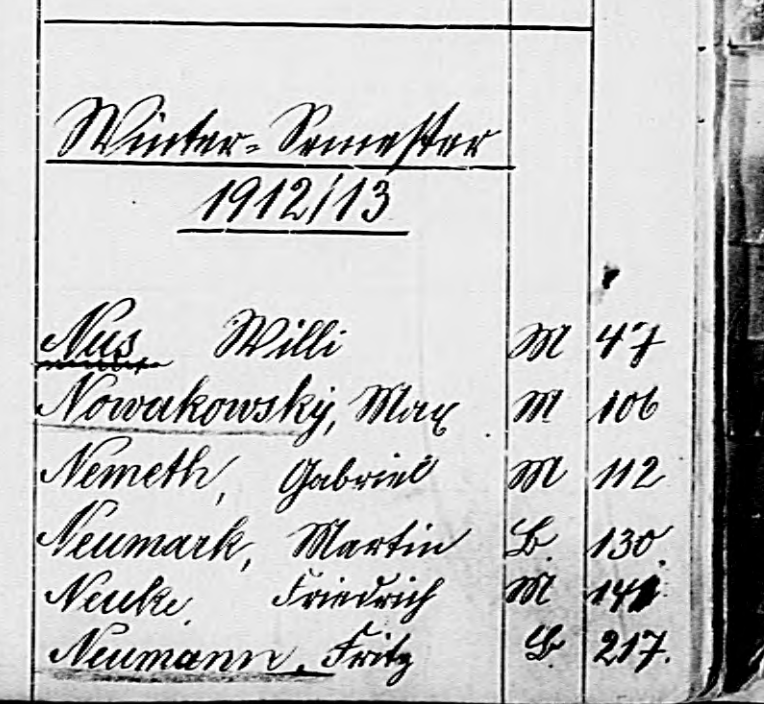 Winter-Semester
1912/13
Nus Willi M 47
Nowakowský, Max M 106
Nemeth, Gabriel M 112
Neumark, Martin B. 130.
Neuke, Friedrich M
Neumann, Fritz B. 217.